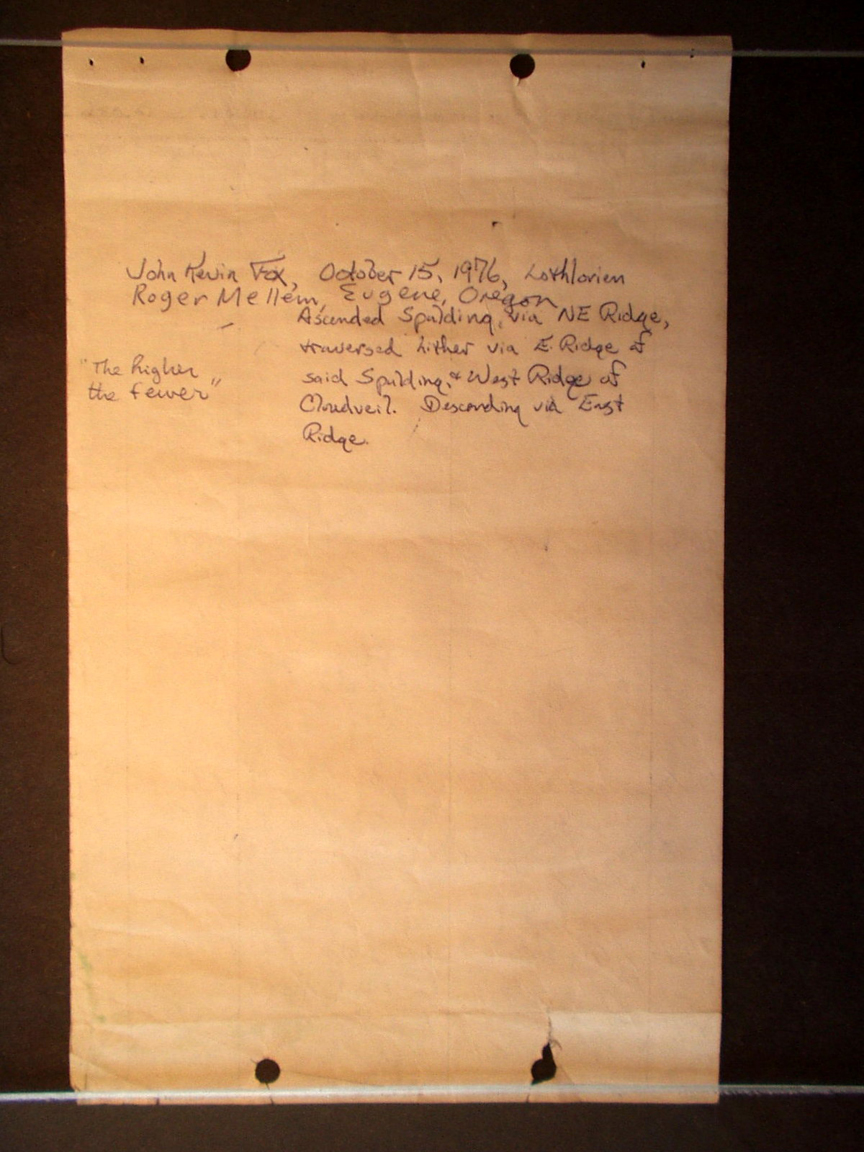 John Kevin Fox, October 15, 1976, Lothlorien
Roger Mellem, Eugene, Oregon
Ascended Spalding, via NE Ridge,
traversed hither via E. Ridge of
said Spalding, & West Ridge of
Cloudveil. Descending via East
Ridge.
"The higher
the fewer"